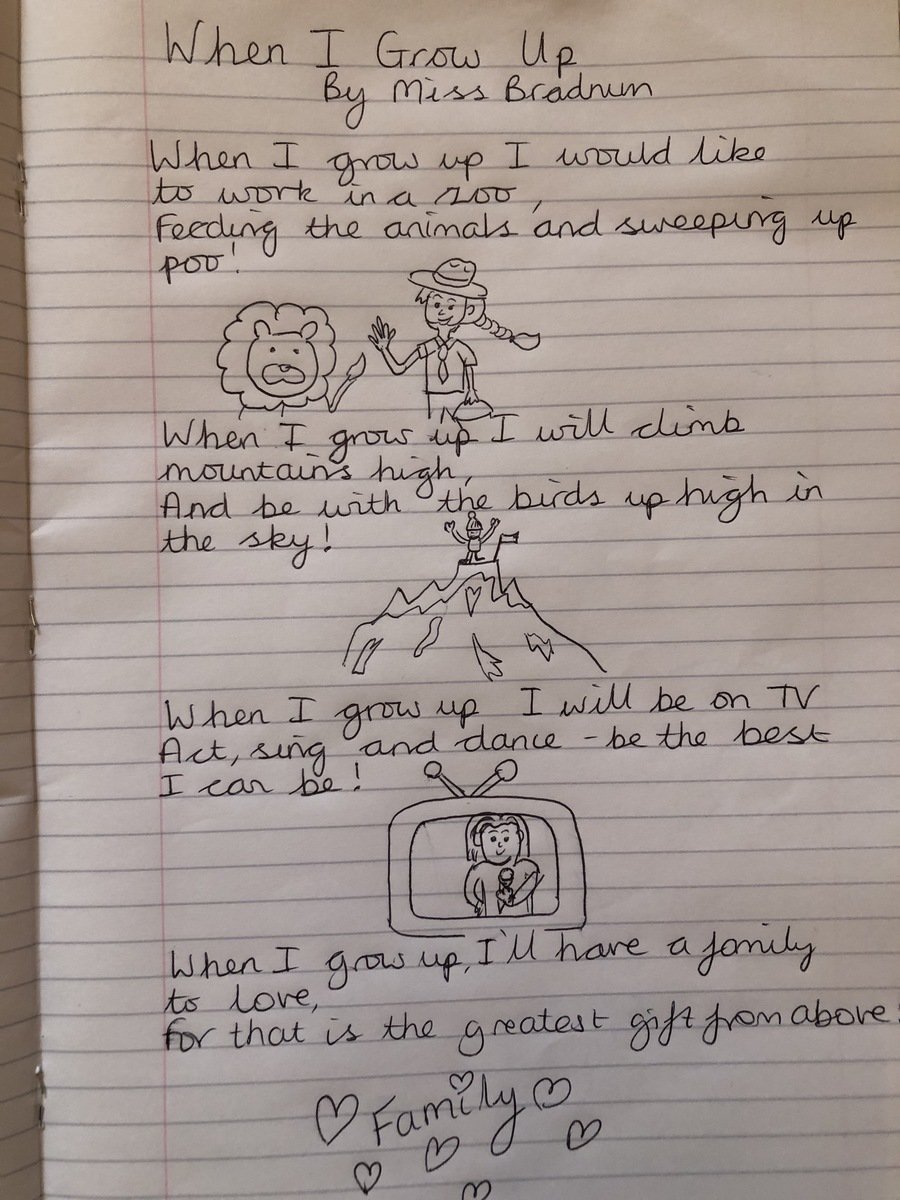 When I Grow Up
By Miss Bradnum
When I grow up I would like
to work in a zoo,
Feeding the animals and sweeping up
poo!
When I grow up I will climb
mountains high,
And be with the birds up high in
the sky!
When I grow up I will be on TV
Act, sing and dance - be the best
I can be!
When I grow up, I'll have a family
to love,
For that is the greatest gift from above!
Family